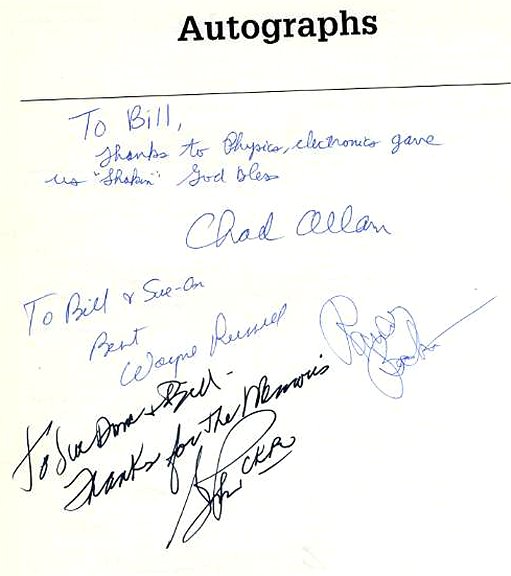 Autographs
To Bill,
Thanks to Physics, electronics gave
us "Shakin" God Bless
Chad Allan
To Bill & Sue-On
Best
Wayne Russell
Randy
To Sue Donn & Bill -
Thanks for The Memoris
CKRC